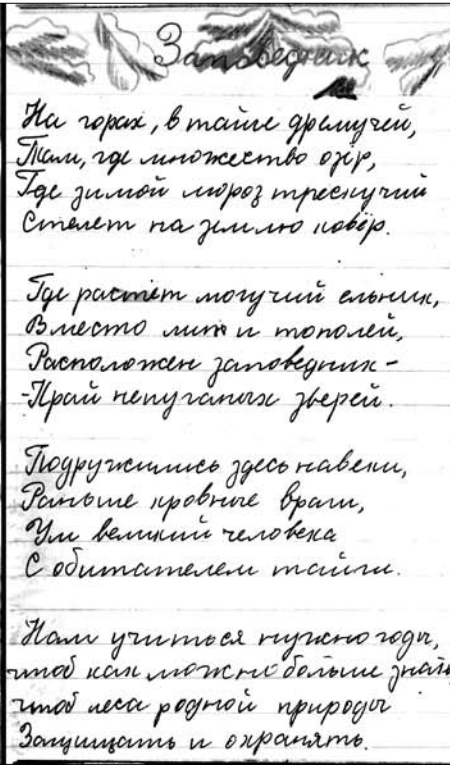 Заповедник
На горах, в тайге дремучей,
Там, где множество озёр,
Где зимой мороз трескучий
Стелет на землю ковёр.
Где растёт могучий ельник,
Вместо лип и тополей,
Расположен заповедник -
-Край непуганых зверей.
Подружились здесь навеки,
Раньше кровные враги,
Ум великий человека
С обитателем тайги.
Нам учиться нужно годы,
чтоб как можно больше знать,
чтоб леса родной природы
Защищать и охранять.